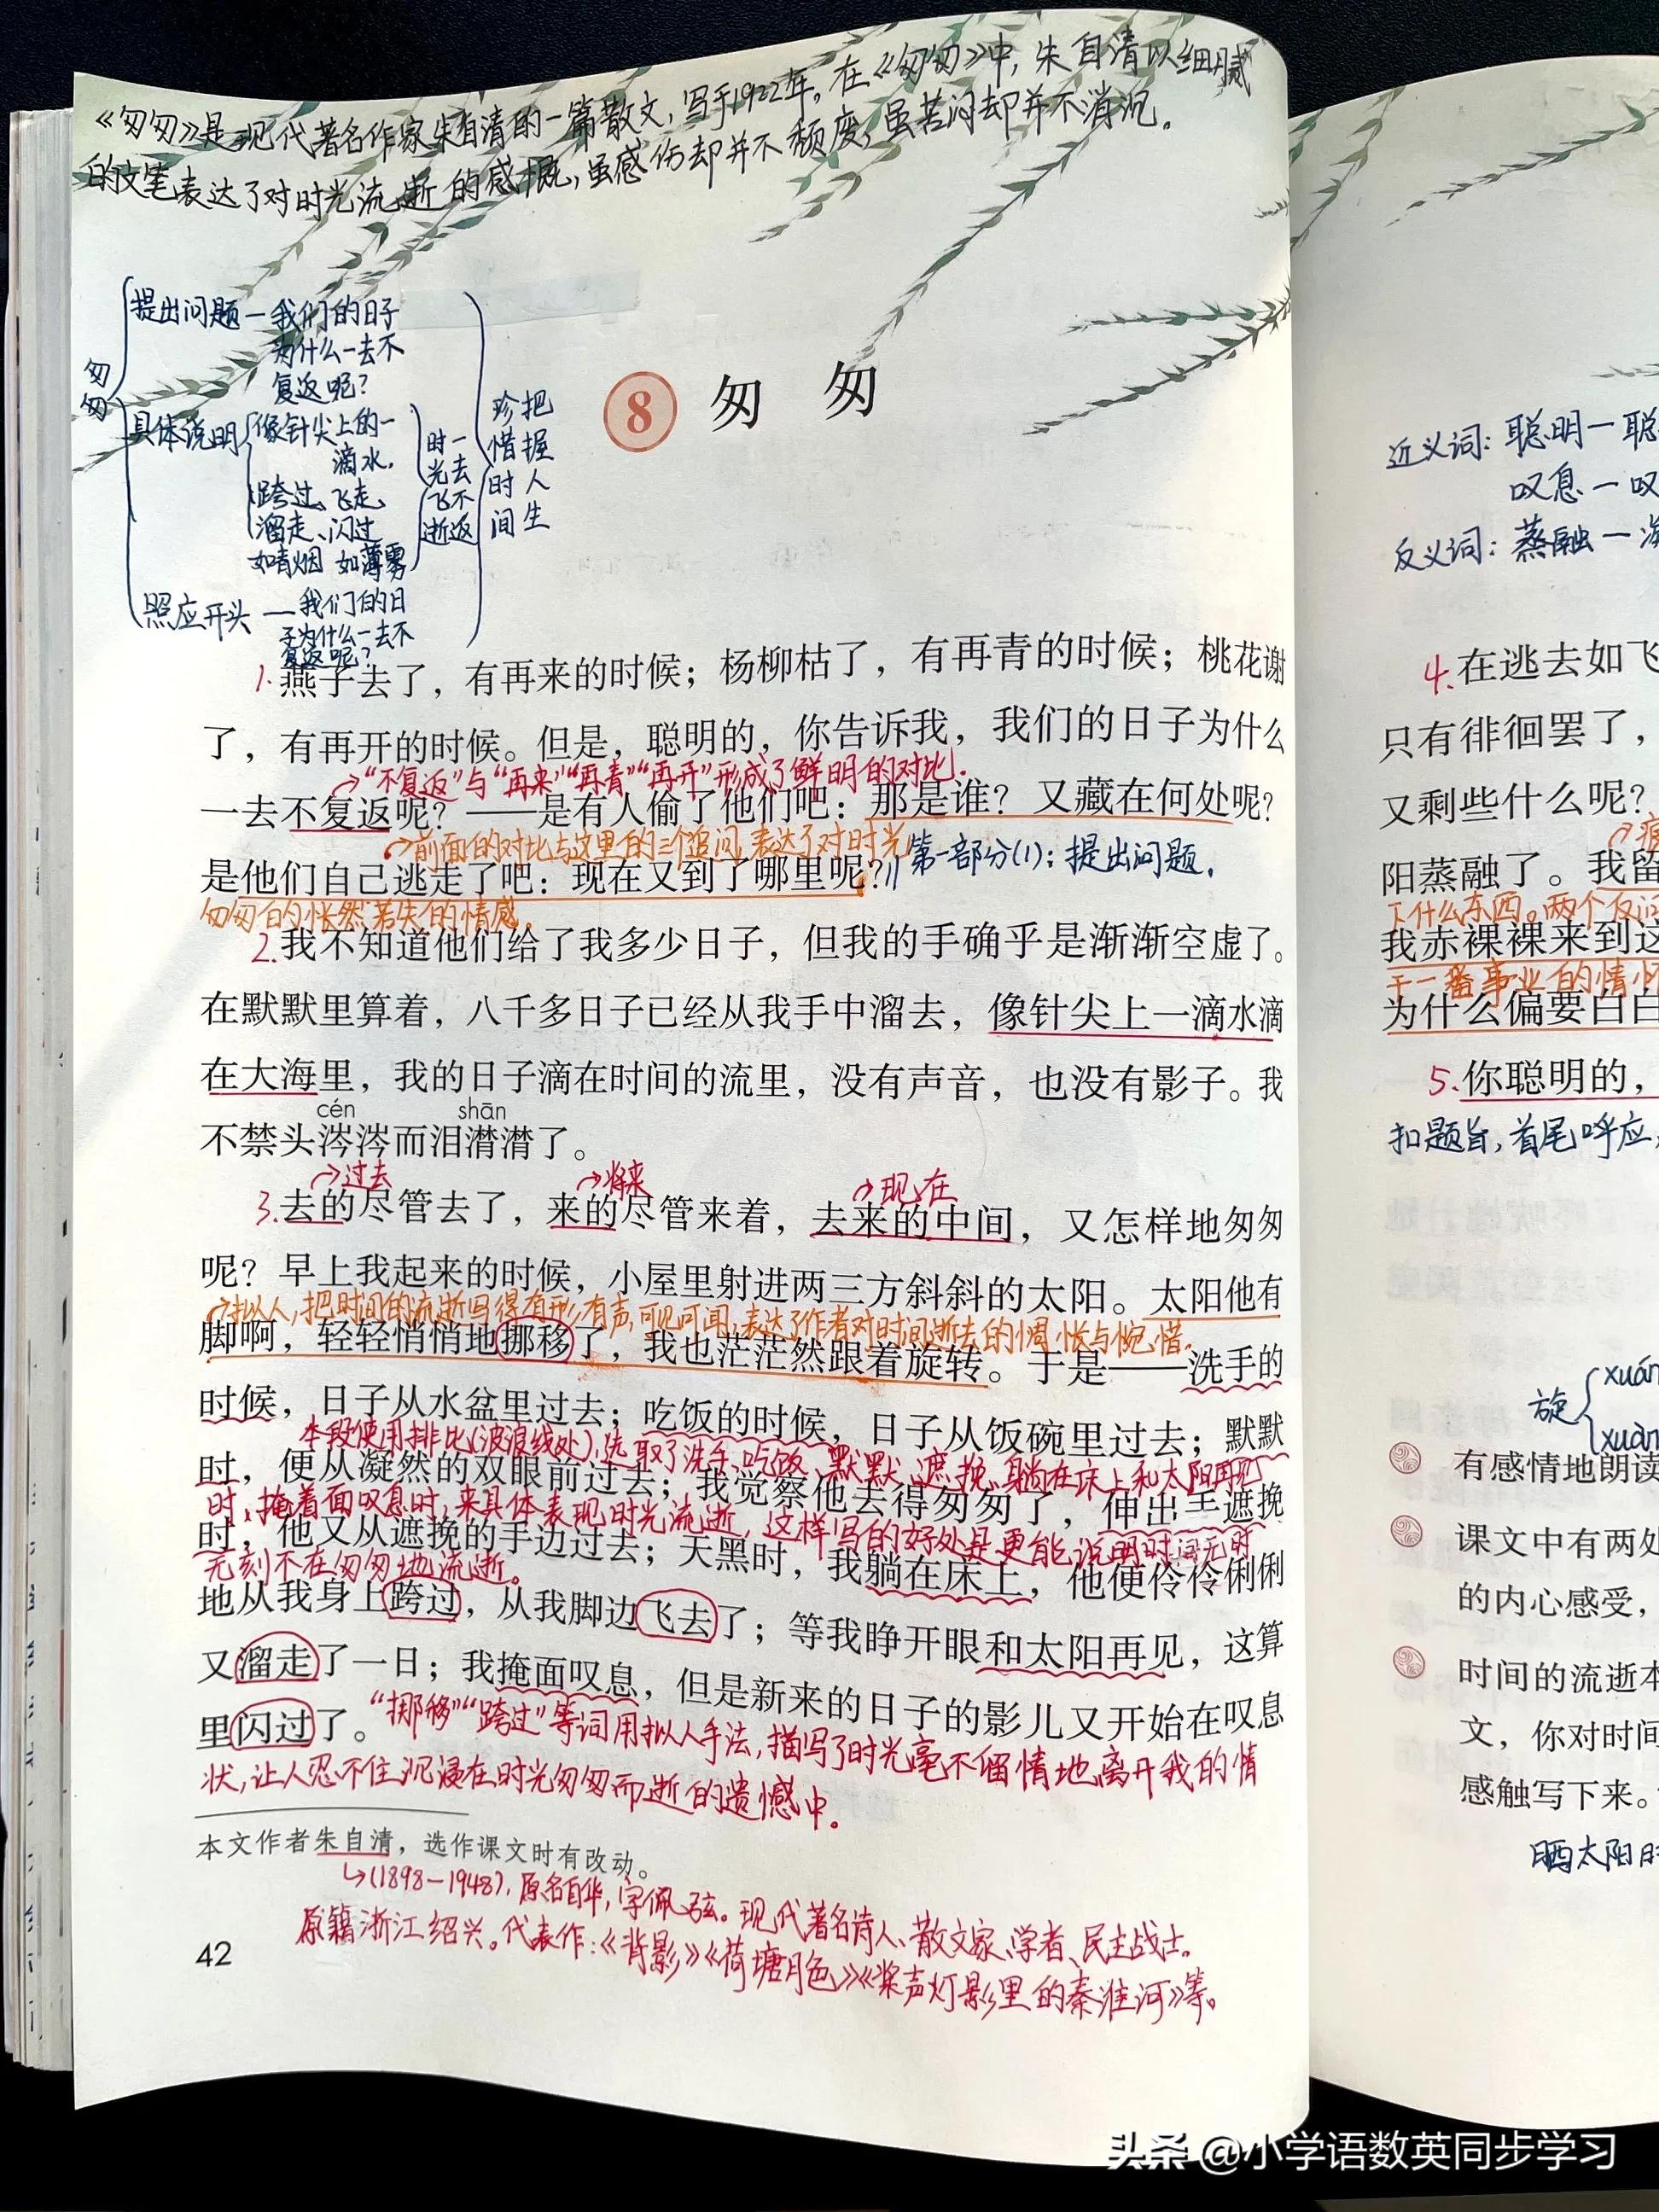 《匆匆》是现代著名作家朱自清的一篇散文,写于1922年。在《匆匆》中,朱自清以细腻
的文笔表达了对时光流逝的感慨,虽感伤却并不颓废,虽苦闷却并不消沉。
匆匆
提出问题—我们的日子
为什么一去不
复返呢?
具体说明
像针尖上的一
滴水,
跨过、飞走、
溜走、闪过
如轻烟 如薄雾
时光飞逝
一去不返
珍惜时间
把握人生
照应开头—我们的日
子为什么一去不
复返呢?
8 匆 匆
1.燕子去了,有再来的时候;杨柳枯了,有再青的时候;桃花谢
了,有再开的时候。但是,聪明的,你告诉我,我们的日子为什么
“不复返”与“再来”“再青”“再开”形成了鲜明的对比。
一去不复返呢?——是有人偷了他们吧:那是谁?又藏在何处呢?
前面的对比与这里的三个追问,表达了对时光
第一部分(1):提出问题。
是他们自己逃走了吧:现在又到了哪里呢?
匆匆的怅然若失的情感。
2.我不知道他们给了我多少日子,但我的手确乎是渐渐空虚了。
在默默里算着,八千多日子已经从我手中溜去,像针尖上一滴水滴
在大海里,我的日子滴在时间的流里,没有声音,也没有影子。我
cén shān
不禁头涔涔而泪潸潸了。
过去 将来 现在
3.去的尽管去了,来的尽管来着,去来的中间,又怎样地匆匆
呢?早上我起来的时候,小屋里射进两三方斜斜的太阳。太阳他有
拟人,把时间的流逝写得有形,有声,可见可闻,表达了作者对时间逝去的惆怅与惋惜。
脚啊,轻轻悄悄地挪移了,我也茫茫然跟着旋转。于是——洗手的
时候,日子从水盆里过去;吃饭的时候,日子从饭碗里过去;默默
本段使用排比(波浪线处),选取了洗手、吃饭、默默、遮挽、躺在床上和太阳再见
时,便从凝然的双眼前过去;我觉察他去得匆匆了,伸出手遮挽
时、掩着面叹息时,来具体表现时光流逝,这样写的好处是更能说明时间无时
时,他又从遮挽的手边过去;天黑时,我躺在床上,他便伶伶俐俐
无刻不在匆匆地流逝。
地从我身上跨过,从我脚边飞去了;等我睁开眼和太阳再见,这算
又溜走了一日;我掩面叹息,但是新来的日子的影儿又开始在叹息
里闪过了。
“挪移”“跨过”等词用拟人手法,描写了时光毫不留情地离开我的情
状,让人忍不住沉浸在时光匆匆而逝的遗憾中。
本文作者朱自清,选作课文时有改动。
(1898-1948),原名自华,字佩弦。现代著名诗人、散文家、学者、民主战士。
原籍浙江绍兴。代表作:《背影》《荷塘月色》《桨声灯影里的秦淮河》等。
42
近义词:聪明—聪
叹息—叹
反义词:蒸融—
4.在逃去如飞
只有徘徊罢了,
又剩些什么呢?
阳蒸融了。我留
下什么东西。两个反问
我赤裸裸来到这
干一番事业的情
为什么偏要白白
5.你聪明的,
扣题旨,首尾呼应,
旋
xuán
xuàn
有感情地朗读
课文中有两处
的内心感受,
时间的流逝本
文,你对时间
感触写下来。
晒太阳时
头条 @小学语数英同步学习